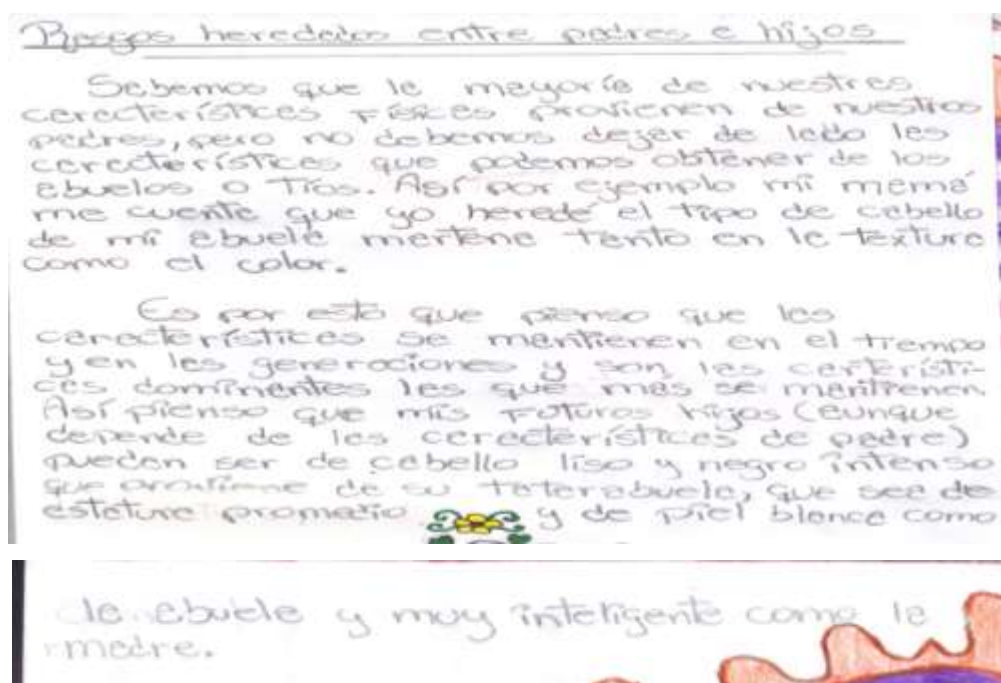 Rasgos heredados entre padres e hijos
Sabemos que la mayoría de nuestras
características físicas provienen de nuestros
padres, pero no debemos dejar de lado las
características que podemos obtener de los
abuelos o tíos. Así por ejemplo mi mamá
me cuenta que yo heredé el tipo de cabello
de mi abuela materna tanto en la textura
como el color.
Es por esto que pienso que las
características se mantienen en el tiempo
y en las generaciones y son las carterísti-
cas dominantes las que mas se mantienen
Así pienso que mis futuros hijos (aunque
depende de las características de padre)
pueden ser de cabello liso y negro intenso
que proviene de su tatarabuela, que sea de
estatura promedio y de piel blanca como
la abuela y muy inteligente como la
madre.